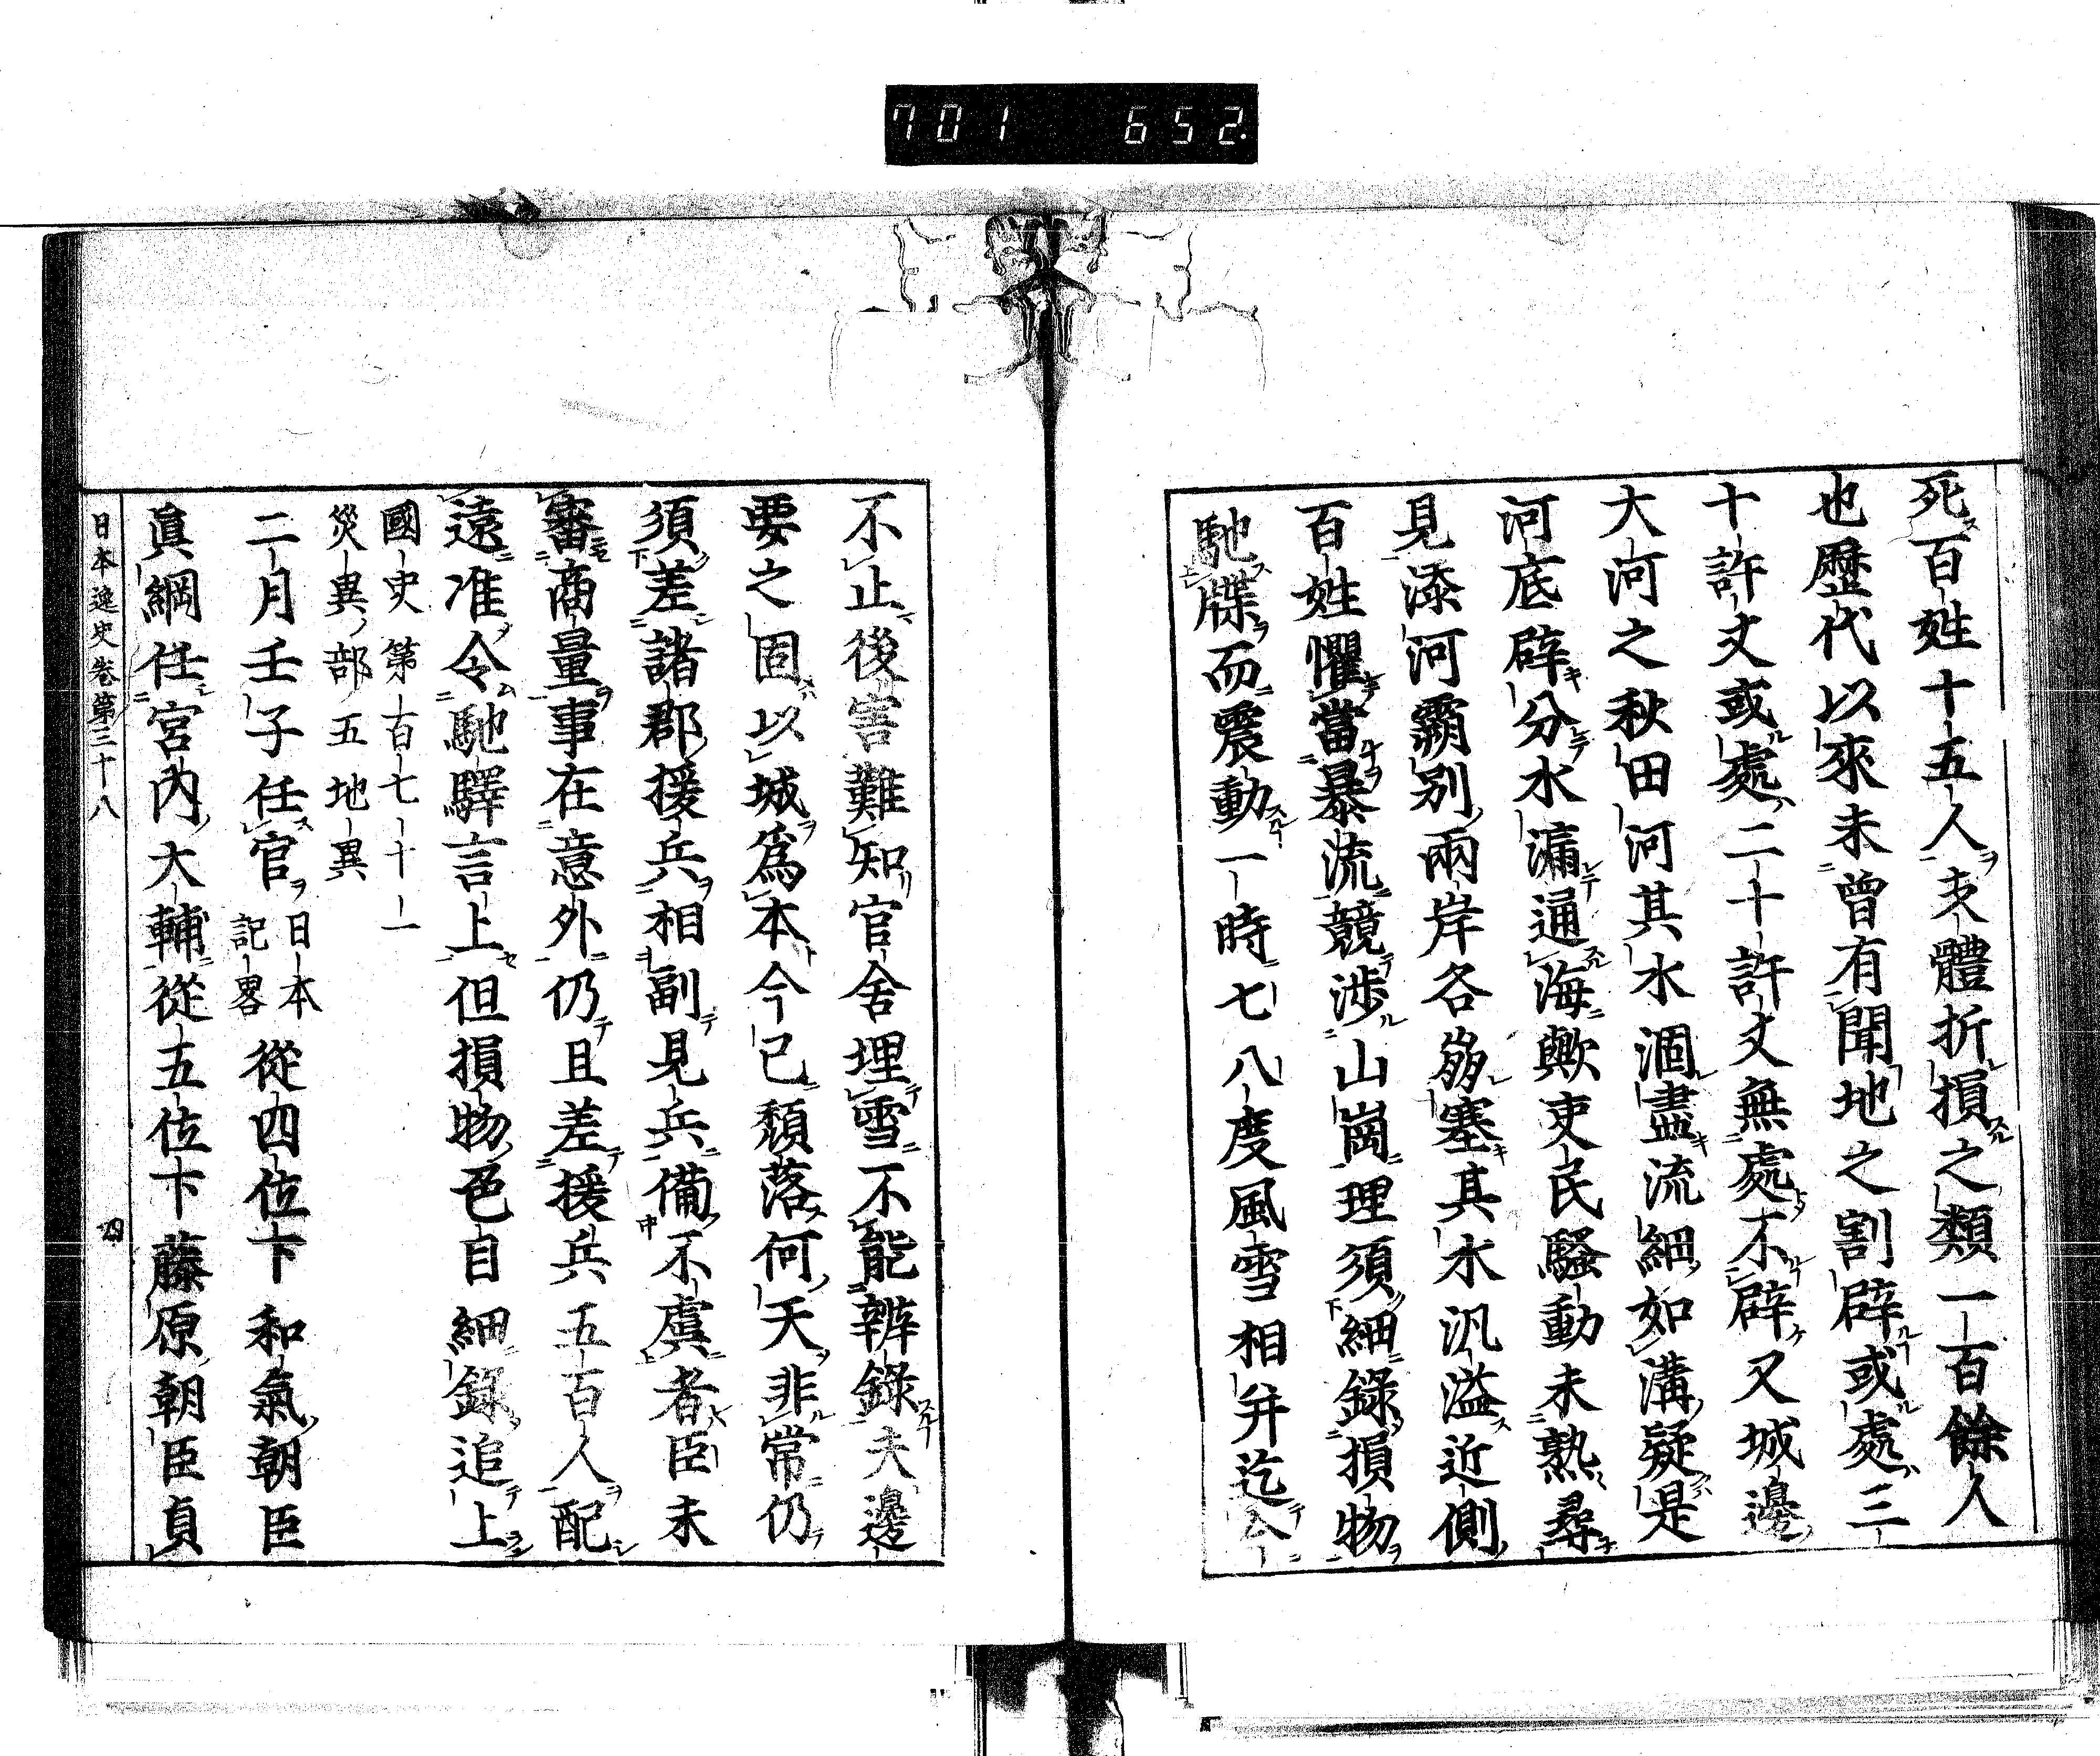 701 652.
死百姓十五人支體折損之類一百餘人
也歷代以來未曾有聞地之割辟或處三
十許丈或處二十許丈無處不辟又城邊
大河之秋田河其水涸盡流細如溝疑是
河底辟分水漏通海歟吏民騷動未熟尋
見添河霸別兩岸各崩塞其水汎溢近側
百姓懼當暴流競渉山崗理須細錄損物
馳牒而震動一時七八度風雪相并迄今
不止後害難知官舍埋雪不能辨錄夫邊
要之固以城爲本今已頽落何夭非常仍
須差諸郡援兵相副見兵備不虞者臣未
審商量事在意外仍且差援兵五百人配
遠准令馳驛言上但損物色目細錄追上
國史第百七十一
災異部五地異
二月壬子任官日本記畧從四位下和氣朝臣
眞綱任宮內大輔從五位下藤原朝臣貞
日本逸史卷第三十八 四